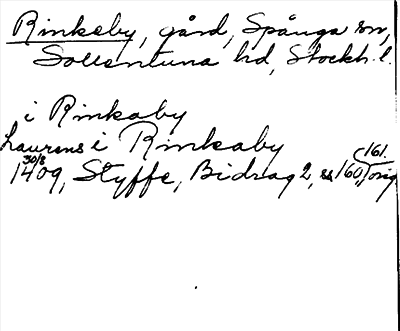 Rinkeby, gård, Spånga sn,
Sollentuna hd, Stockh. l.
i Rinkaby
Laurens i Rinkaby
1409 30/8, Styffe, Bidrag 2, s. 160, 161. orig